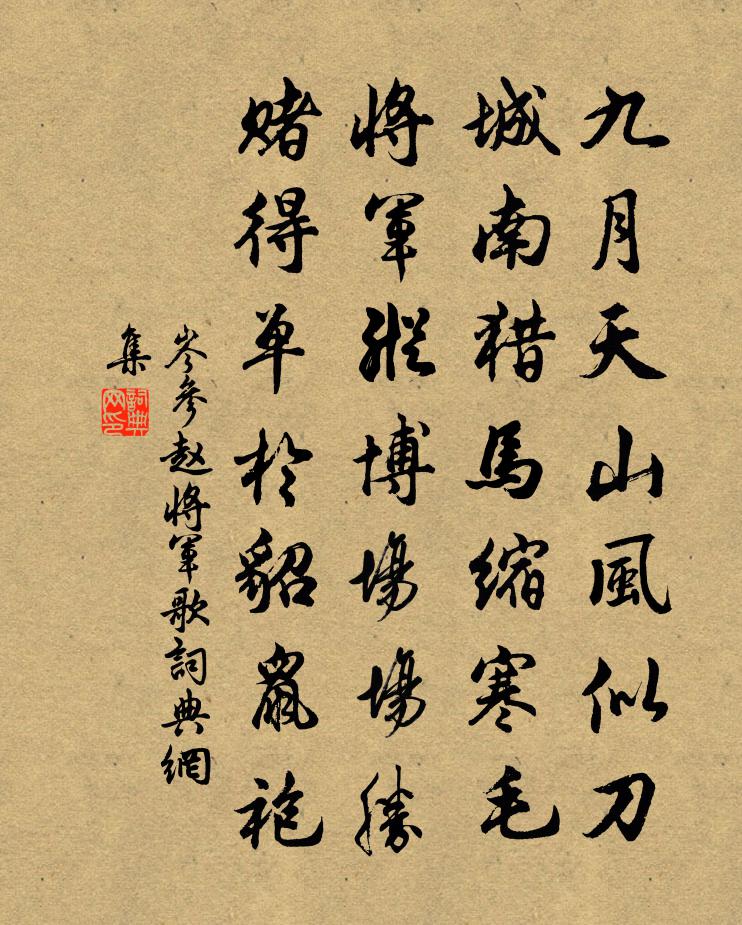 九月天山風似刀
城南猎馬缩寒毛
将軍縱博場場勝
赌得单於貂鼠袍
岑參赵将軍歌詞典網
集
詞典
网印